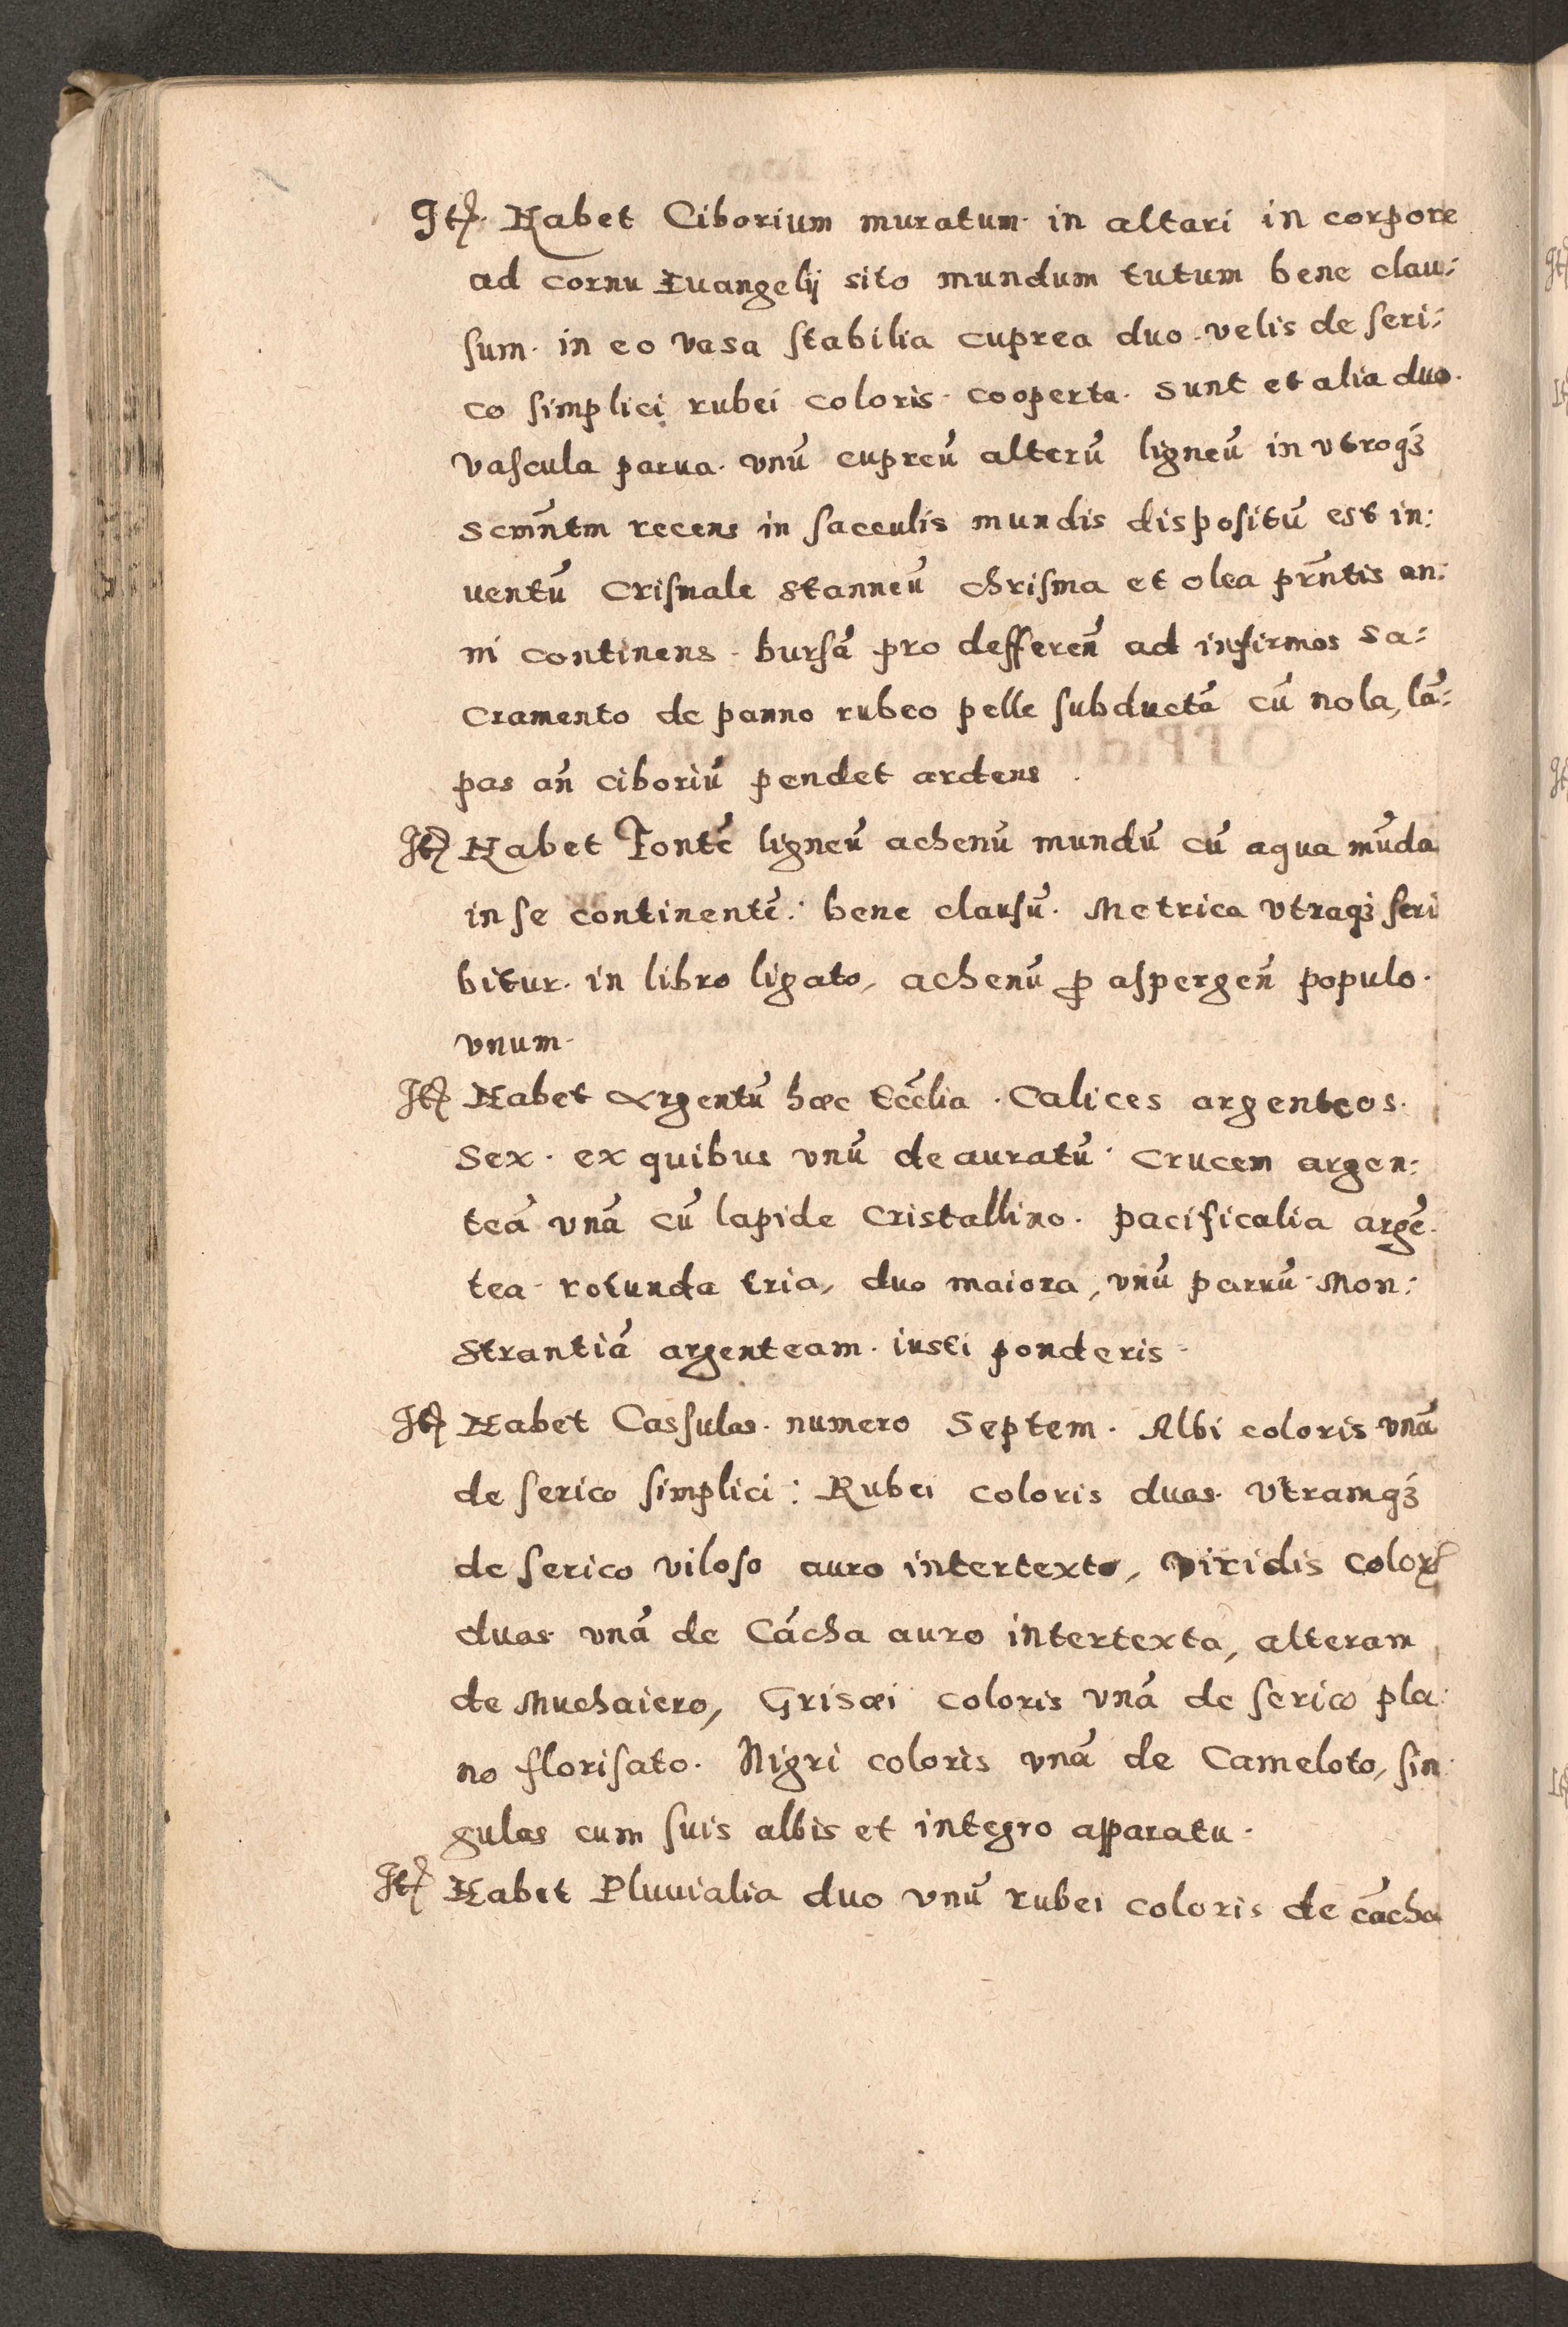 Itꝫ. Habet Ciborium muratum. in altari in corpore
ad cornu Euangelij sito mundum tutum bene clau:
sum. in eo vasa stabilia cuprea duo. velis de seri:
co simplici rubei coloris. cooperta. sunt et alia duo.
vascula parua. vnū cupreū alterū ligneū in vtroqꝫ
scm̄ntm recens in sacculis mundis dispositū est in:
uentū Crismale stanneū chrisma et olea pr̄ntis an:
ni continens. bursā pro defferen̄ ad infirmos sa:
cramento de panno rubeo pelle subductā cū nola, lā:
pas an̄ ciboriū pendet ardens.
Itꝫ Habet Fontē ligneū achenū mundū cū aqua mūda
in se continentē: bene clausū. Metrica vtraqꝫ scri
bitur. in libro ligato, achenū ꝓ aspergen̄ populo.
vnum.
Itꝫ Habet Argentū hæc Eccl̄ia. Calices argenteos.
Sex. ex quibus vnū deauratū. crucem argen:
teā vnā cū lapide cristallino. pacificalia argē.
tea. rotunda tria, duo maiora, vnū paruū. Mon:
strantiā argenteam. iusti ponderis.
Itꝫ Habet Cassulas. numero Septem. Albi coloris vnā
de serico simplici: Rubei coloris duas. vtramqꝫ
de serico viloso auro intertexto, viridis colorꝭ
duas. vnā de Cācha auro intertexta, alteram
de Muchaiero, Grisæi coloris vnā de serico pla:
no florisato. Nigri coloris vnā de Cameloto, sin:
gulas cum suis albis et integro apparatu.
Itꝫ Habet Pluuialia duo vnū rubei coloris de cācha